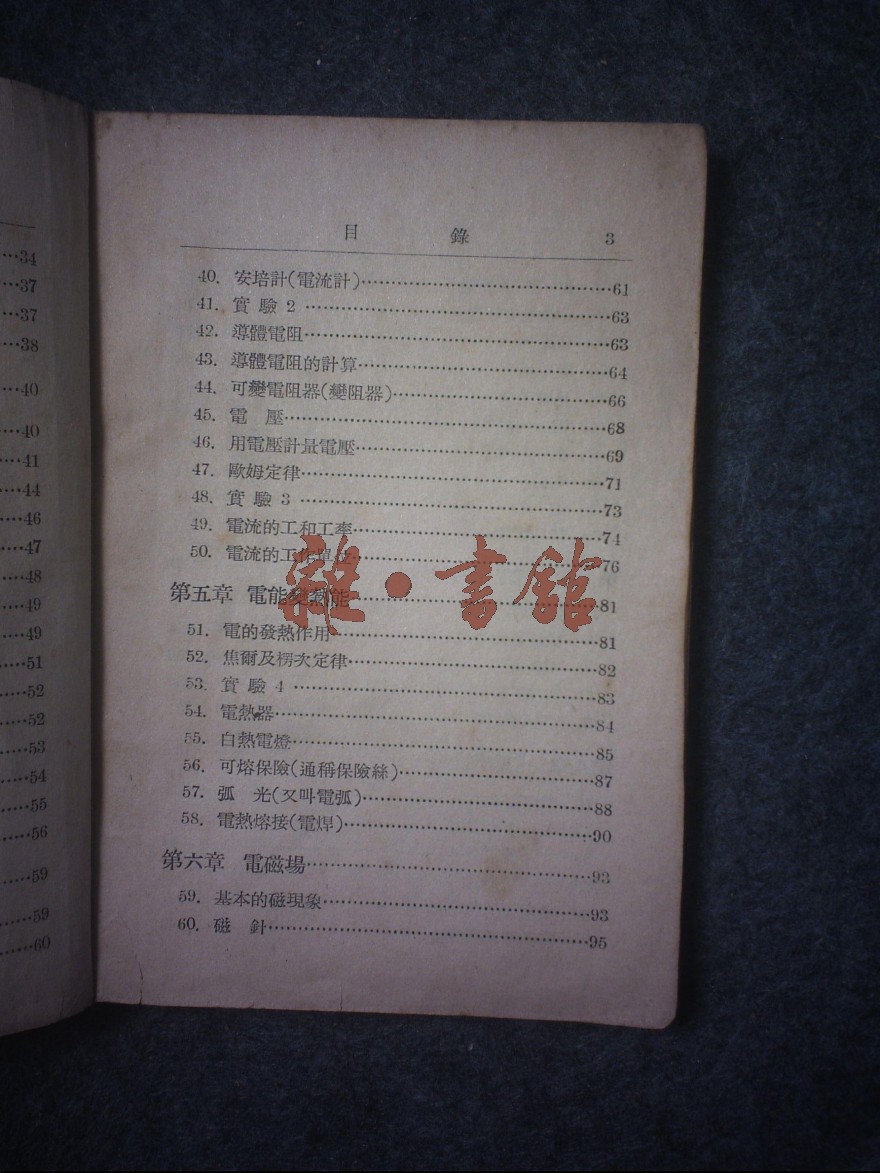 …34
…37
…37
…38
…40
…40
…41
…44
…46
…47
…48
…49
…49
…51
…52
…52
…53
…54
…55
…56
…59
…59
…60
目 錄 3
40. 安培計(電流計)…61
41. 實驗 2 …63
42. 導體電阻…63
43. 導體電阻的計算…64
44. 可變電阻器(變阻器)…66
45. 電 壓…68
46. 用電壓計量電壓…69
47. 歐姆定律…71
48. 實驗 3 …73
49. 電流的工和工率…74
50. 電流的工作單位…76
第五章 電能變熱能…81
51. 電的發熱作用…81
52. 焦爾及楞次定律…82
53. 實驗 4 …83
54. 電熱器…84
55. 白熱電燈…85
56. 可熔保險(通稱保險絲)…87
57. 弧 光(又叫電弧)…88
58. 電熱熔接(電焊)…90
第六章 電磁場…93
59. 基本的磁現象…93
60. 磁 針…95
雜·書館